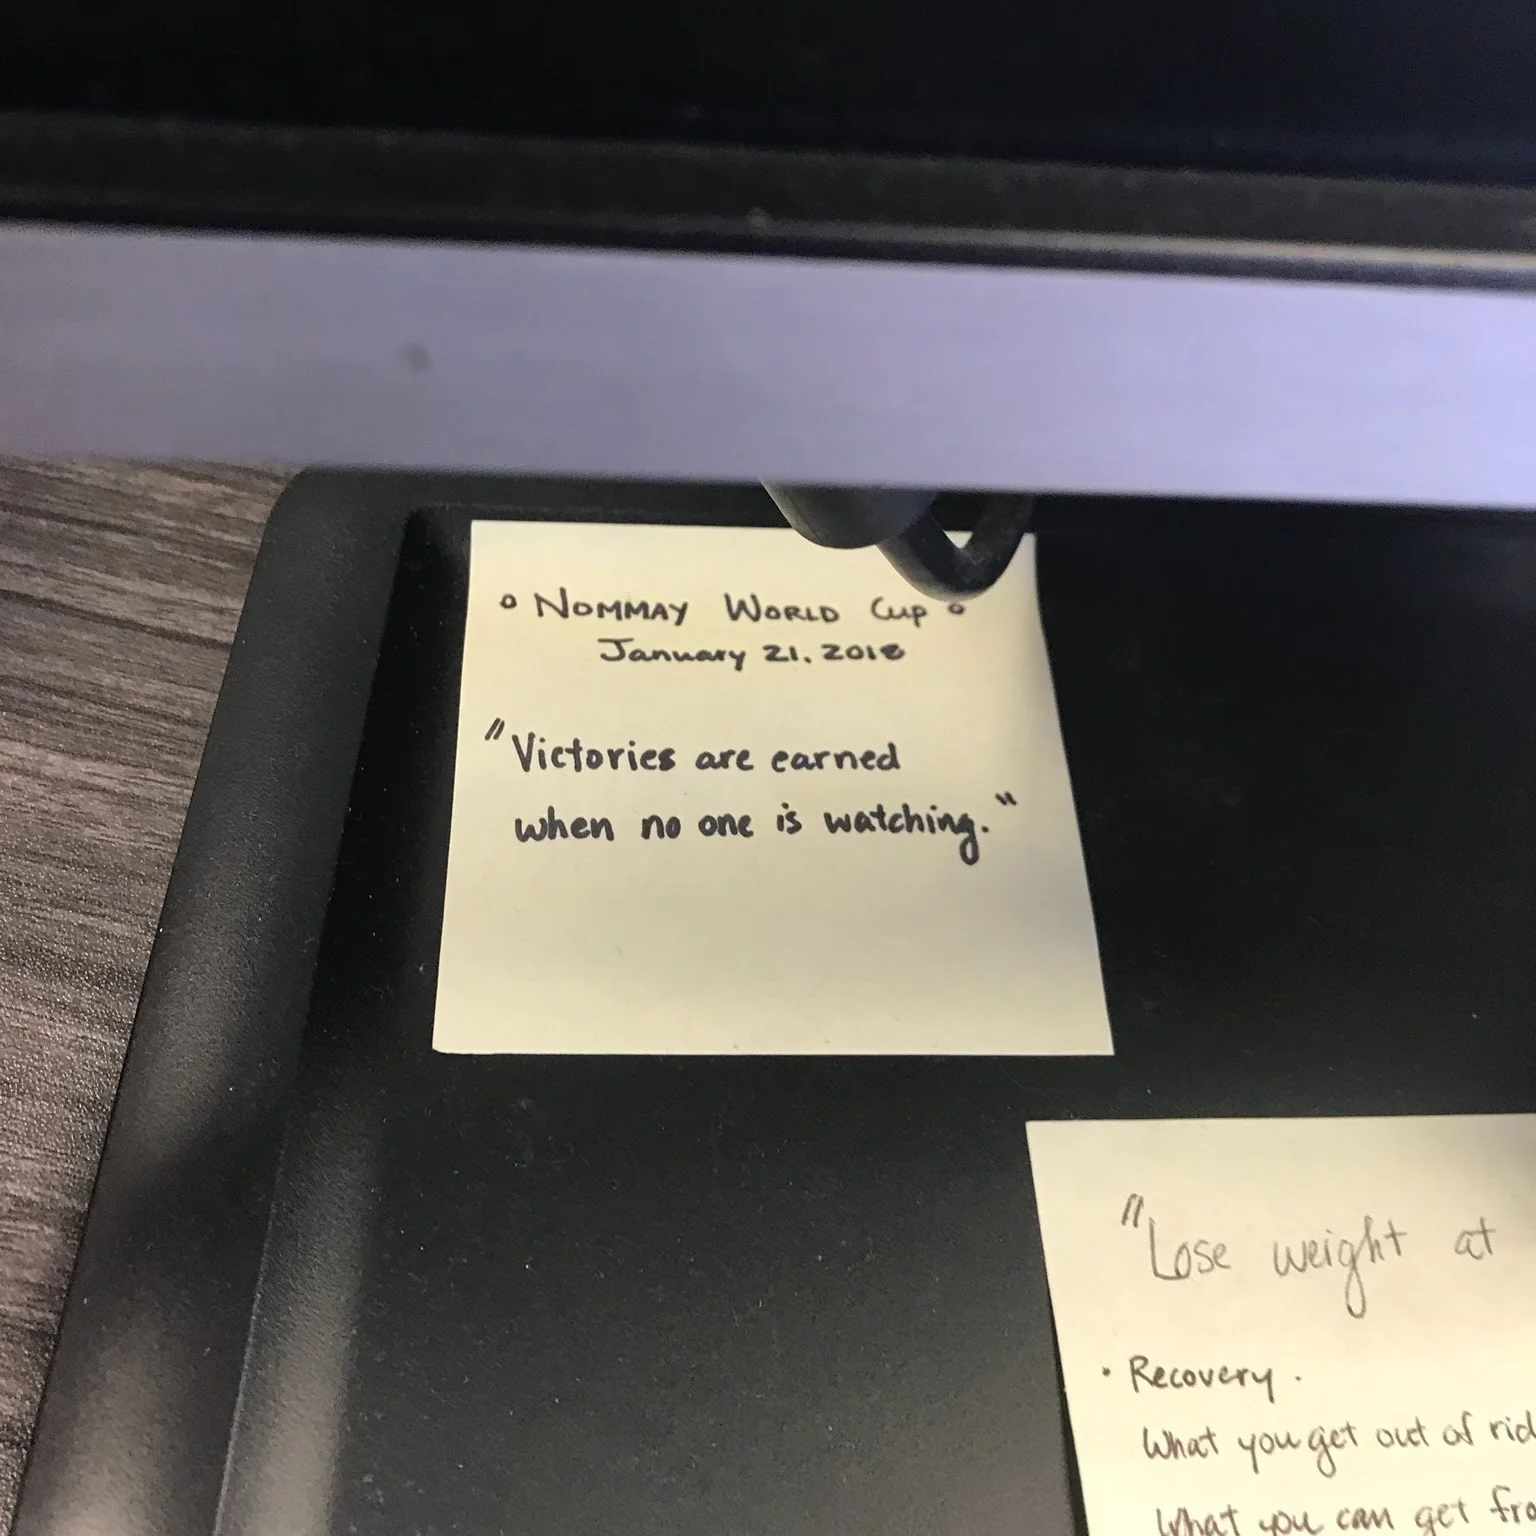 ° Nommay World Cup °
January 21. 2018
"Victories are earned
when no one is watching."
"Lose weight at
• Recovery.
What you get out of rid
What you can get fro